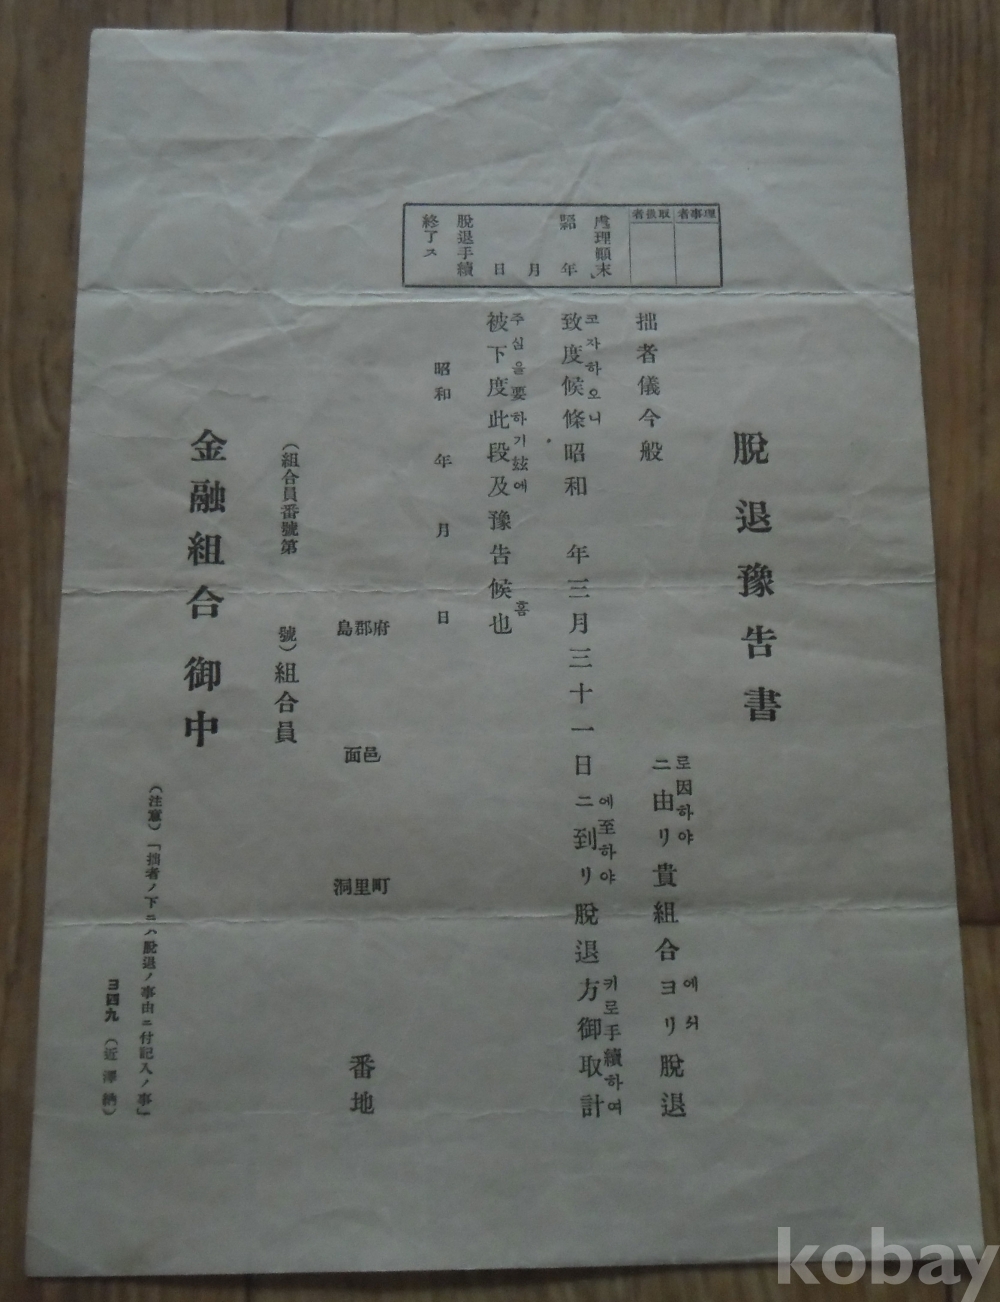 脫退豫告書
理事者
取扱者
處理顚末
昭　年　月　日
脫退手續
終了ス
拙者儀今般　ニ由リ貴組合ヨリ脫退
로因하야　에서
致度候條昭和　年三月三十一日ニ到リ脫退方御取計
코자하오니　에至하야　키로手續하여
被下度此段及豫告候也
주심을要하기玆에　홈
昭和　年　月　日
府郡島　邑面　町里洞　番地
（組合員番號第　號）組合員
金融組合　御中
（注意）「拙者ノ下ニハ脫退ノ事由ニ付記入ノ事」
ヨ四九（近澤納）
kobay